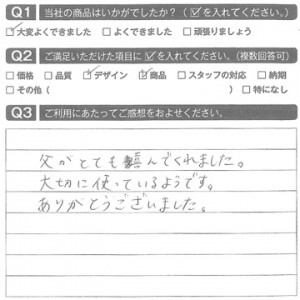 Q1 当社の商品はいかがでしたか？（☑を入れてください。）
☑大変よくできました □よくできました □頑張りましょう
Q2 ご満足いただけた項目に☑を入れてください。（複数回答可）
□価格 □品質 ☑デザイン ☑商品 □スタッフの対応 □納期
□その他（ ）□特になし
Q3 ご利用にあたってご感想をおよせください。
父がとても喜んでくれました。
大切に使っているようです。
ありがとうございました。